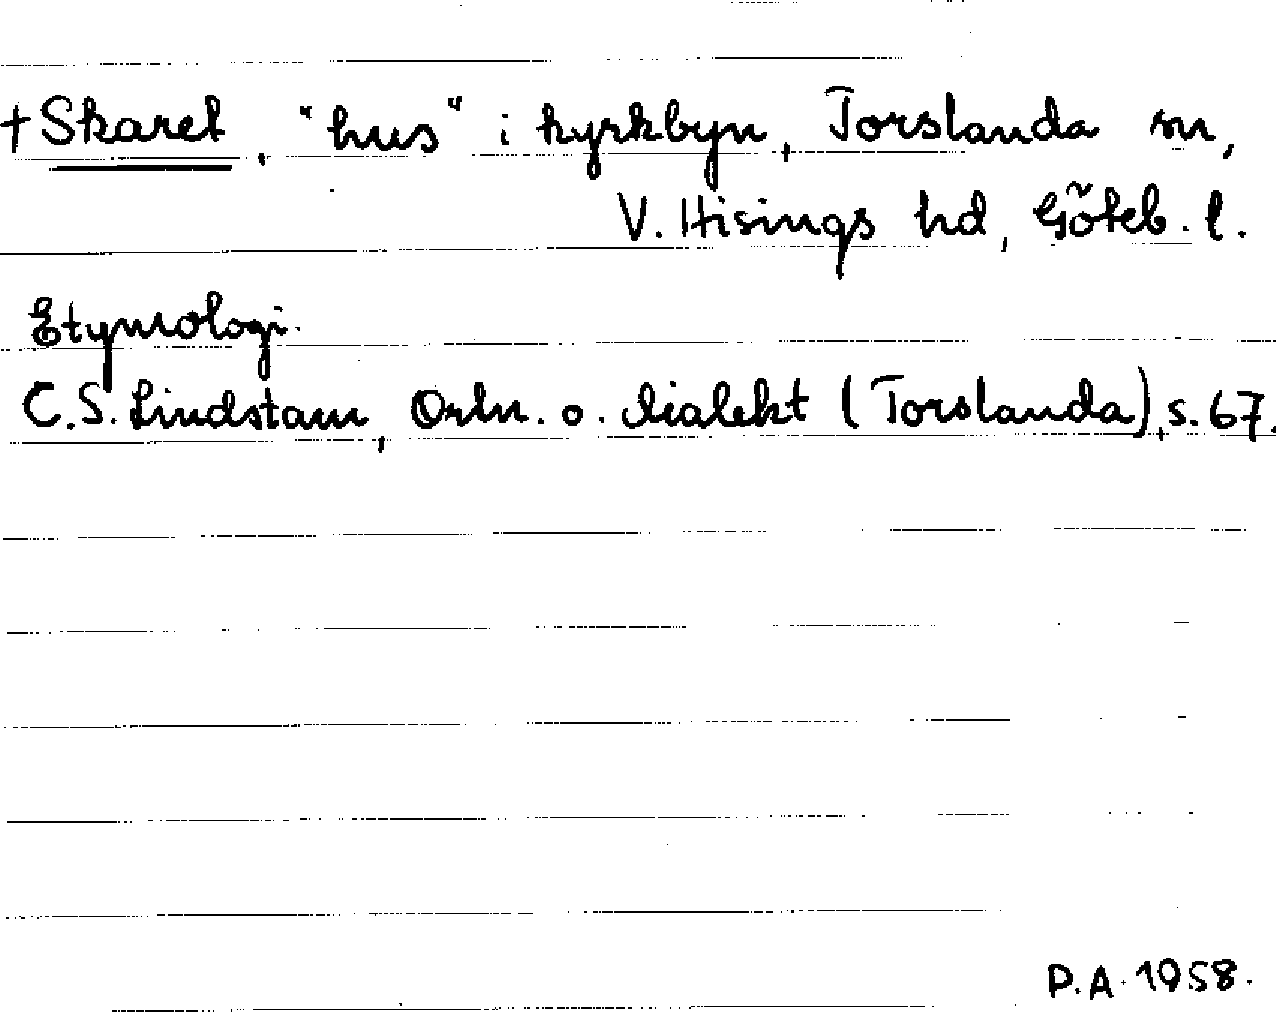 † Skaret, "hus" i kyrkbyn, Torslanda sn,
V. Hisings hd, Göteb. l.
Etymologi.
C.S. Lindstam, Ortn. o. dialekt (Torslanda), s. 67.
P.A. 1958.